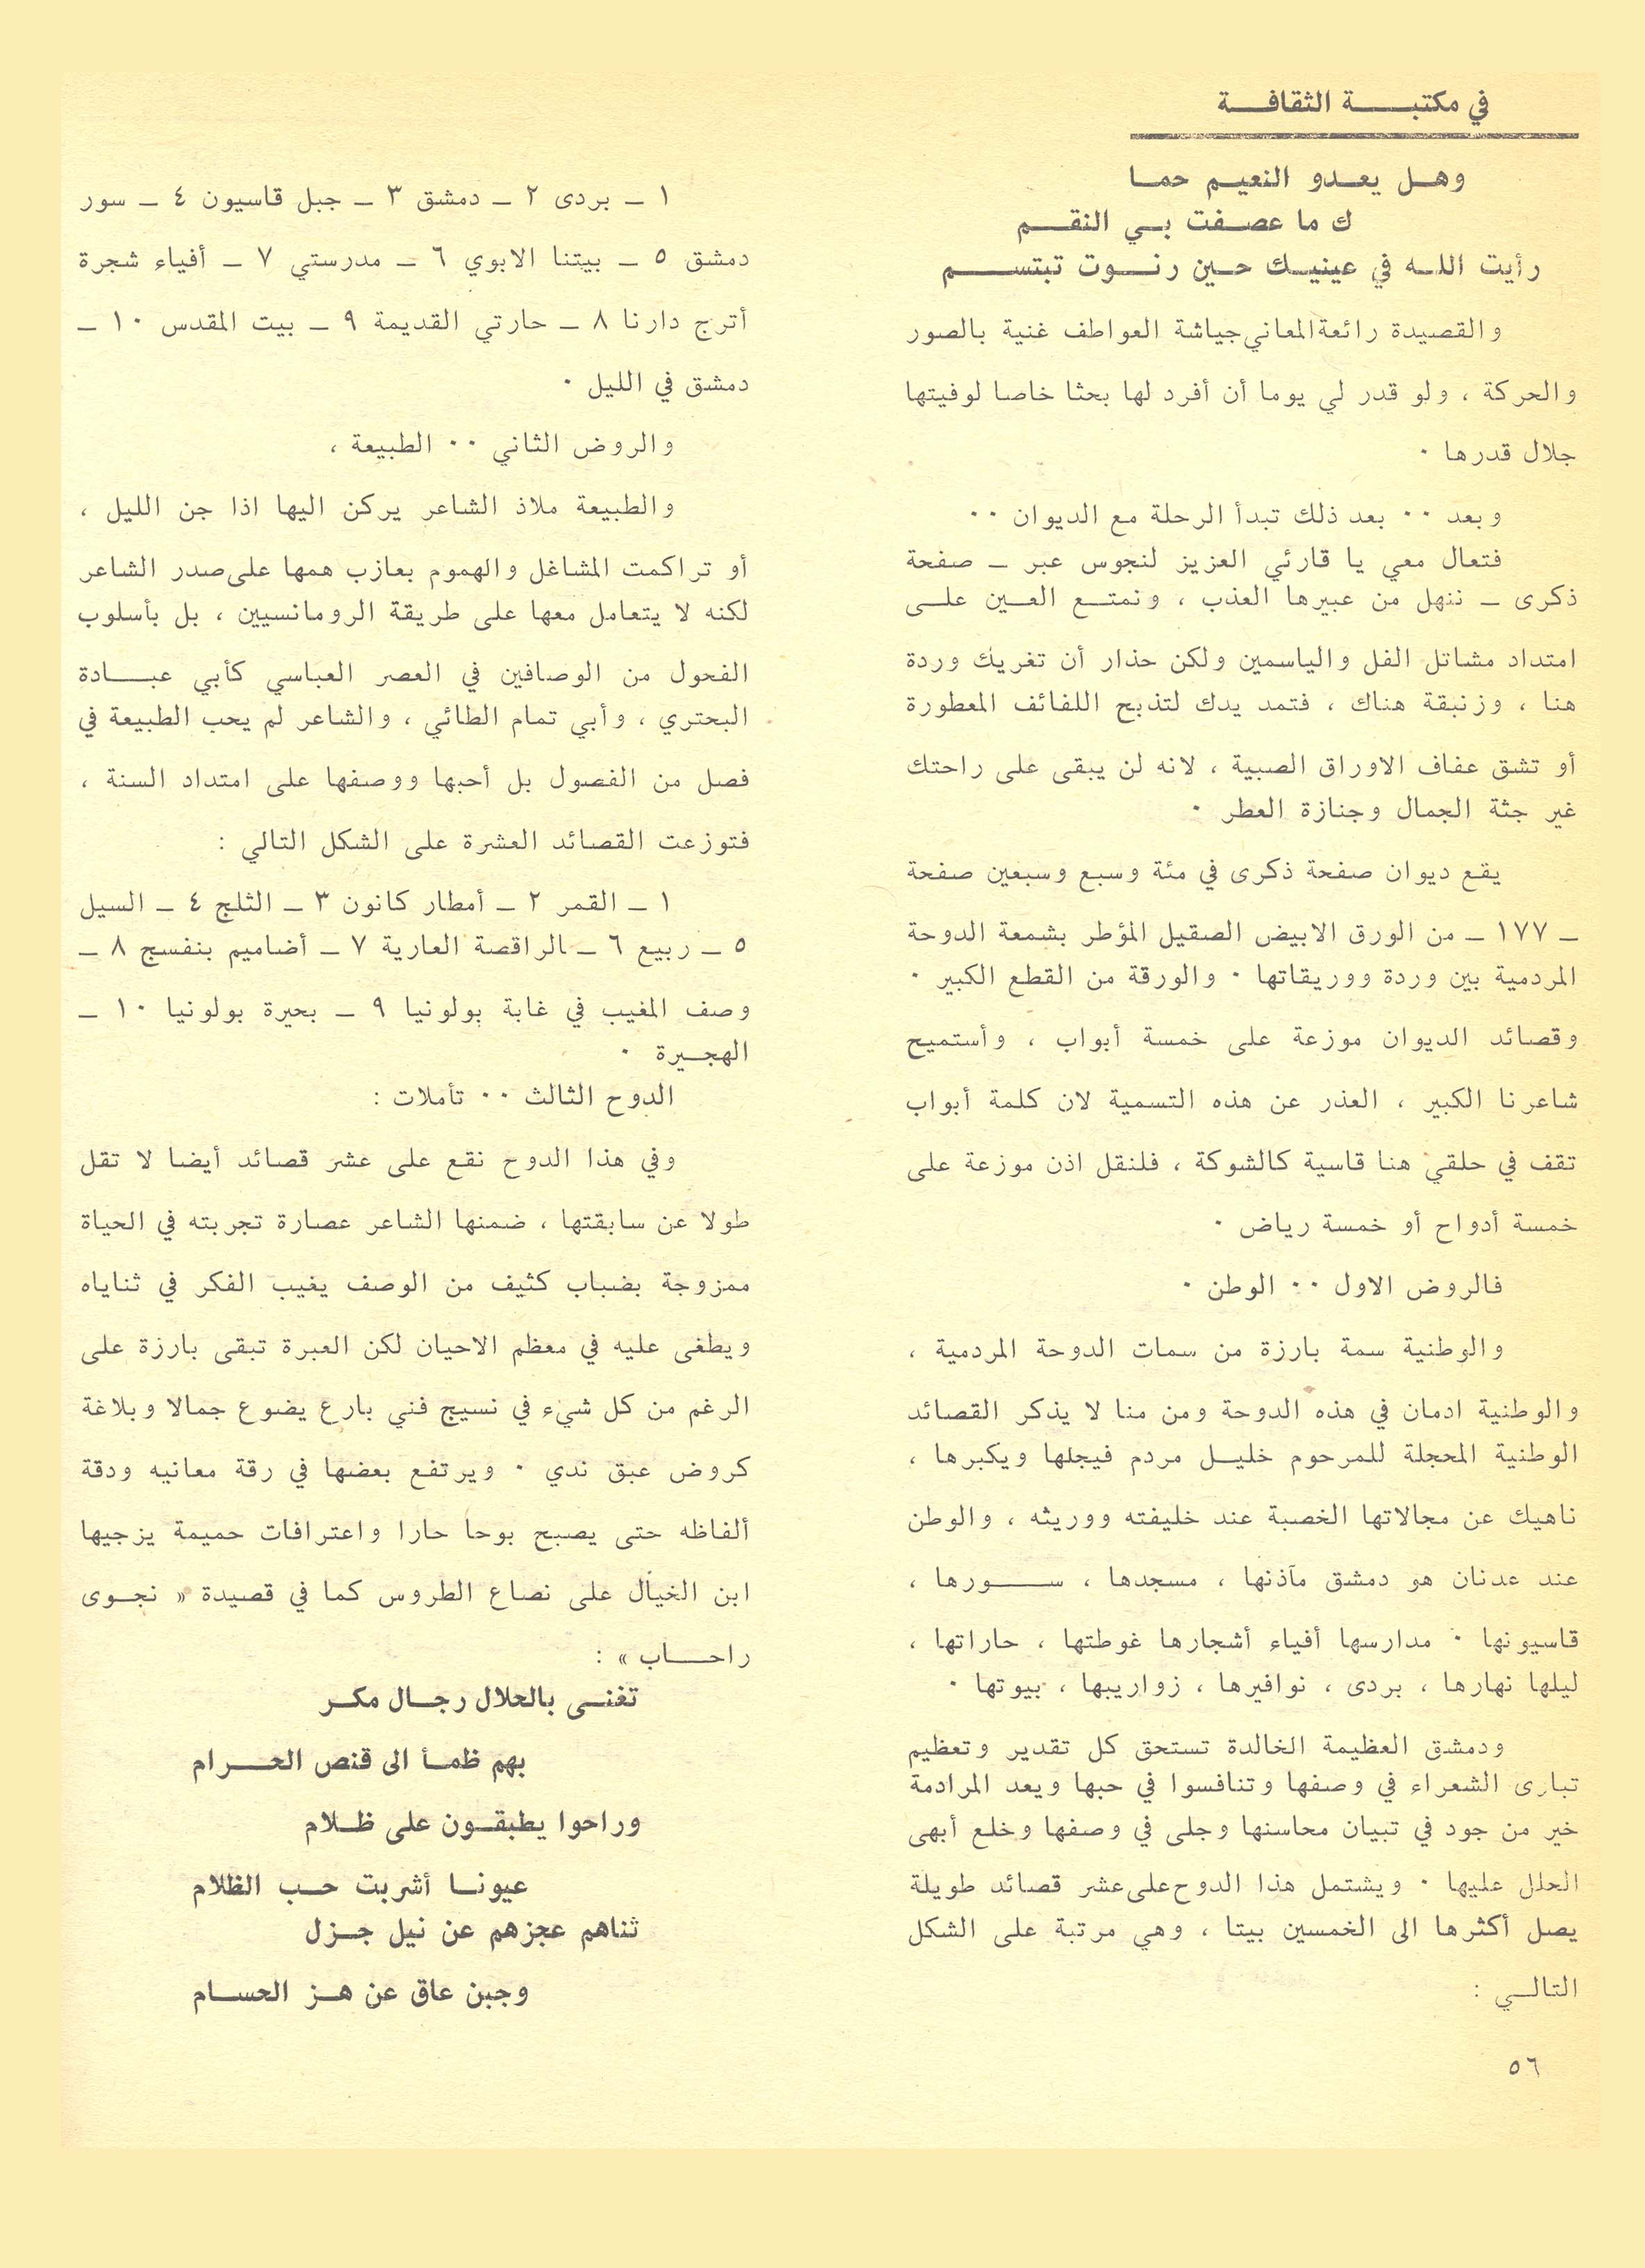 في مكتبة الثقافة
وهل يعدو النعيم حما
ك ما عصفت بي النقم
رأيت الله في عينيك حين رنوت تبتسم
والقصيدة رائعة المعاني جياشة العواطف غنية بالصور
والحركة ، ولو قدر لي يوما أن أفرد لها بحثا خاصا لوفيتها
جلال قدرها ٠
وبعد ٠٠ بعد ذلك تبدأ الرحلة مع الديوان ٠٠
فتعال معي يا قارئي العزيز لنجوس عبر ــ صفحة
ذكرى ــ ننهل من عبيرها العذب ، ونمتع العين على
امتداد مشاتل الفل والياسمين ولكن حذار أن تغريك وردة
هنا ، وزنبقة هناك ، فتمد يدك لتذبح اللفائف المعطورة
أو تشق عفاف الاوراق الصبية ، لانه لن يبقى على راحتك
غير جثة الجمال وجنازة العطر ٠
يقع ديوان صفحة ذكرى في مئة وسبع وسبعين صفحة
ــ ١٧٧ ــ من الورق الابيض الصقيل المؤطر بشمعة الدوحة
المردمية بين وردة ووريقاتها ٠ والورقة من القطع الكبير ٠
وقصائد الديوان موزعة على خمسة أبواب ، وأستميح
شاعرنا الكبير ، العذر عن هذه التسمية لان كلمة أبواب
تقف في حلقي هنا قاسية كالشوكة ، فلنقل اذن موزعة على
خمسة أدواح أو خمسة رياض ٠
فالروض الاول ٠٠ الوطن ٠
والوطنية سمة بارزة من سمات الدوحة المردمية ،
والوطنية ادمان في هذه الدوحة ومن منا لا يذكر القصائد
الوطنية المحجلة للمرحوم خليل مردم فيجلها ويكبرها ،
ناهيك عن مجالاتها الخصبة عند خليفته ووريثه ، والوطن
عند عدنان هو دمشق مآذنها ، مسجدها ، سورها ،
قاسيونها ٠ مدارسها أفياء أشجارها غوطتها ، حاراتها ،
ليلها نهارها ، بردى ، نوافيرها ، زواريبها ، بيوتها ٠
ودمشق العظيمة الخالدة تستحق كل تقدير وتعظيم
تبارى الشعراء في وصفها وتنافسوا في حبها ويعد المرادمة
خير من جود في تبيان محاسنها وجلى في وصفها وخلع أبهى
الحلل عليها ٠ ويشتمل هذا الدوح على عشر قصائد طويلة
يصل أكثرها الى الخمسين بيتا ، وهي مرتبة على الشكل
التالي :
١ ــ بردى ٢ ــ دمشق ٣ ــ جبل قاسيون ٤ ــ سور
دمشق ٥ ــ بيتنا الابوي ٦ ــ مدرستي ٧ ــ أفياء شجرة
أترج دارنا ٨ ــ حارتي القديمة ٩ ــ بيت المقدس ١٠ ــ
دمشق في الليل ٠
والروض الثاني ٠٠ الطبيعة ،
والطبيعة ملاذ الشاعر يركن اليها اذا جن الليل ،
أو تراكمت المشاغل والهموم بعازب همها على صدر الشاعر
لكنه لا يتعامل معها على طريقة الرومانسيين ، بل بأسلوب
الفحول من الوصافين في العصر العباسي كأبي عبادة
البحتري ، وأبي تمام الطائي ، والشاعر لم يحب الطبيعة في
فصل من الفصول بل أحبها ووصفها على امتداد السنة ،
فتوزعت القصائد العشرة على الشكل التالي :
١ ــ القمر ٢ ــ أمطار كانون ٣ ــ الثلج ٤ ــ السيل
٥ ــ ربيع ٦ ــ الراقصة العارية ٧ ــ أضاميم بنفسج ٨ ــ
وصف المغيب في غابة بولونيا ٩ ــ بحيرة بولونيا ١٠ ــ
الهجيرة ٠
الدوح الثالث ٠٠ تأملات :
وفي هذا الدوح نقع على عشر قصائد أيضا لا تقل
طولا عن سابقتها ، ضمنها الشاعر عصارة تجربته في الحياة
ممزوجة بضباب كثيف من الوصف يغيب الفكر في ثناياه
ويطغى عليه في معظم الاحيان لكن العبرة تبقى بارزة على
الرغم من كل شيء في نسيج فني بارع يضوع جمالا وبلاغة
كروض عبق ندي ٠ ويرتفع بعضها في رقة معانيه ودقة
ألفاظه حتى يصبح بوحا حارا واعترافات حميمة يزجيها
ابن الخيال على نصاع الطروس كما في قصيدة « نجوى
راحاب » :
تغنى بالحلال رجال مكر
بهم ظمأ الى قنص الحرام
وراحوا يطبقون على ظلام
عيونا أشربت حب الظلام
ثناهم عجزهم عن نيل جزل
وجبن عاق عن هز الحسام
٥٦